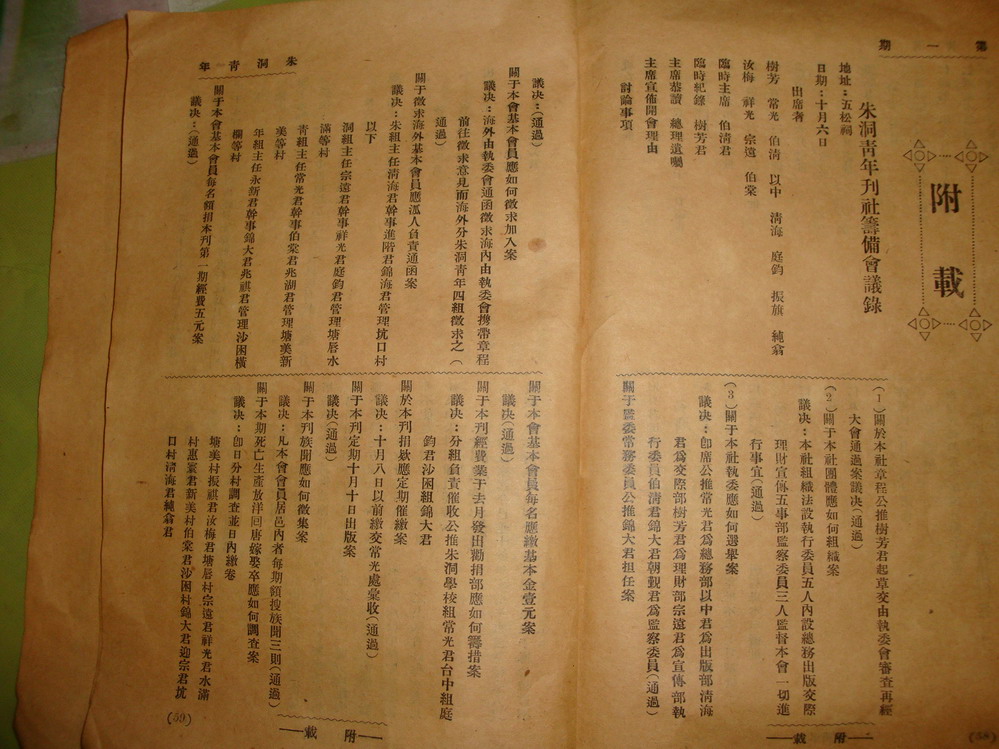 第一期
附載
朱洞青年刊社籌備會議錄
地址：五松祠
日期：十月六日
出席者
樹芳　常光　伯淸　以中　淸海　庭鈞　振旗　純翕
汝梅　祥光　宗遠　伯棠
臨時主席　伯淸君
臨時紀錄　樹芳君
主席恭讀　總理遺囑
主席宣佈開會理由
討論事項
(1)關於本社章程公推樹芳君起草交由執委會審查再經
大會通過案議决（通過）
(2)關于本社團體應如何組織案
議决：本社組織法設執行委員五人內設總務出版交際
理財宣傳五事部監察委員三人監督本會一切進
行事宜（通過）
(3)關于本社執委應如何選舉案
議决：卽席公推常光君爲總務部以中君爲出版部淸海
君爲交際部樹芳君爲理財部宗遠君爲宣傳部執
行委員伯淸君錦大君朝覲君爲監察委員（通過）
關于監委常務委員公推錦大君担任案
附載
(58)
朱洞青年
議决：（通過）
關于本會基本會員應如何徵求加入案
議决：海外由執委會通函徵求海內由執委會携帶章程
前往徵求意見而海外分朱洞靑年四組徵求之（
通過）
關于徵求海外基本會員應派人負責通函案
議决：朱組主任淸海君幹事進階君錦海君管理坑口村
以下
洞組主任宗遠君幹事祥光君庭鈞君管理塘唇水
滿等村
靑組主任常光君幹事伯棠君兆湖君管理塘美新
美等村
年組主任永新君幹事錦大君兆祺君管理沙囷橫
欄等村
關于本會基本會員每名額捐本刊第一期經費五元案
議决：（通過）
關于本會基本會員每名應繳基本金壹元案
議决（通過）
關于本刊經費業于去月發出勸捐部應如何籌措案
議决：分組負責催收公推朱洞學校組常光君台中組庭
鈞君沙囷組錦大君
關於本刊捐欵應定期催繳案
議决：十月八日以前繳交常光處彙收（通過）
關于本刊定期十月十日出版案
議决（通過）
關于本刊族聞應如何徵集案
議决：凡本會會員居邑內者每期額搜族聞三則（通過）
關于本期死亡生產放洋回唐嫁娶卒應如何調查案
議决：卽日分村調查並日內繳卷
塘美村振祺君汝梅君塘唇村宗遠君祥光君水滿
村惠宸君新美村伯棠君沙囷村錦大君迎宗君坑
口村淸海君純翕君
附載
(59)